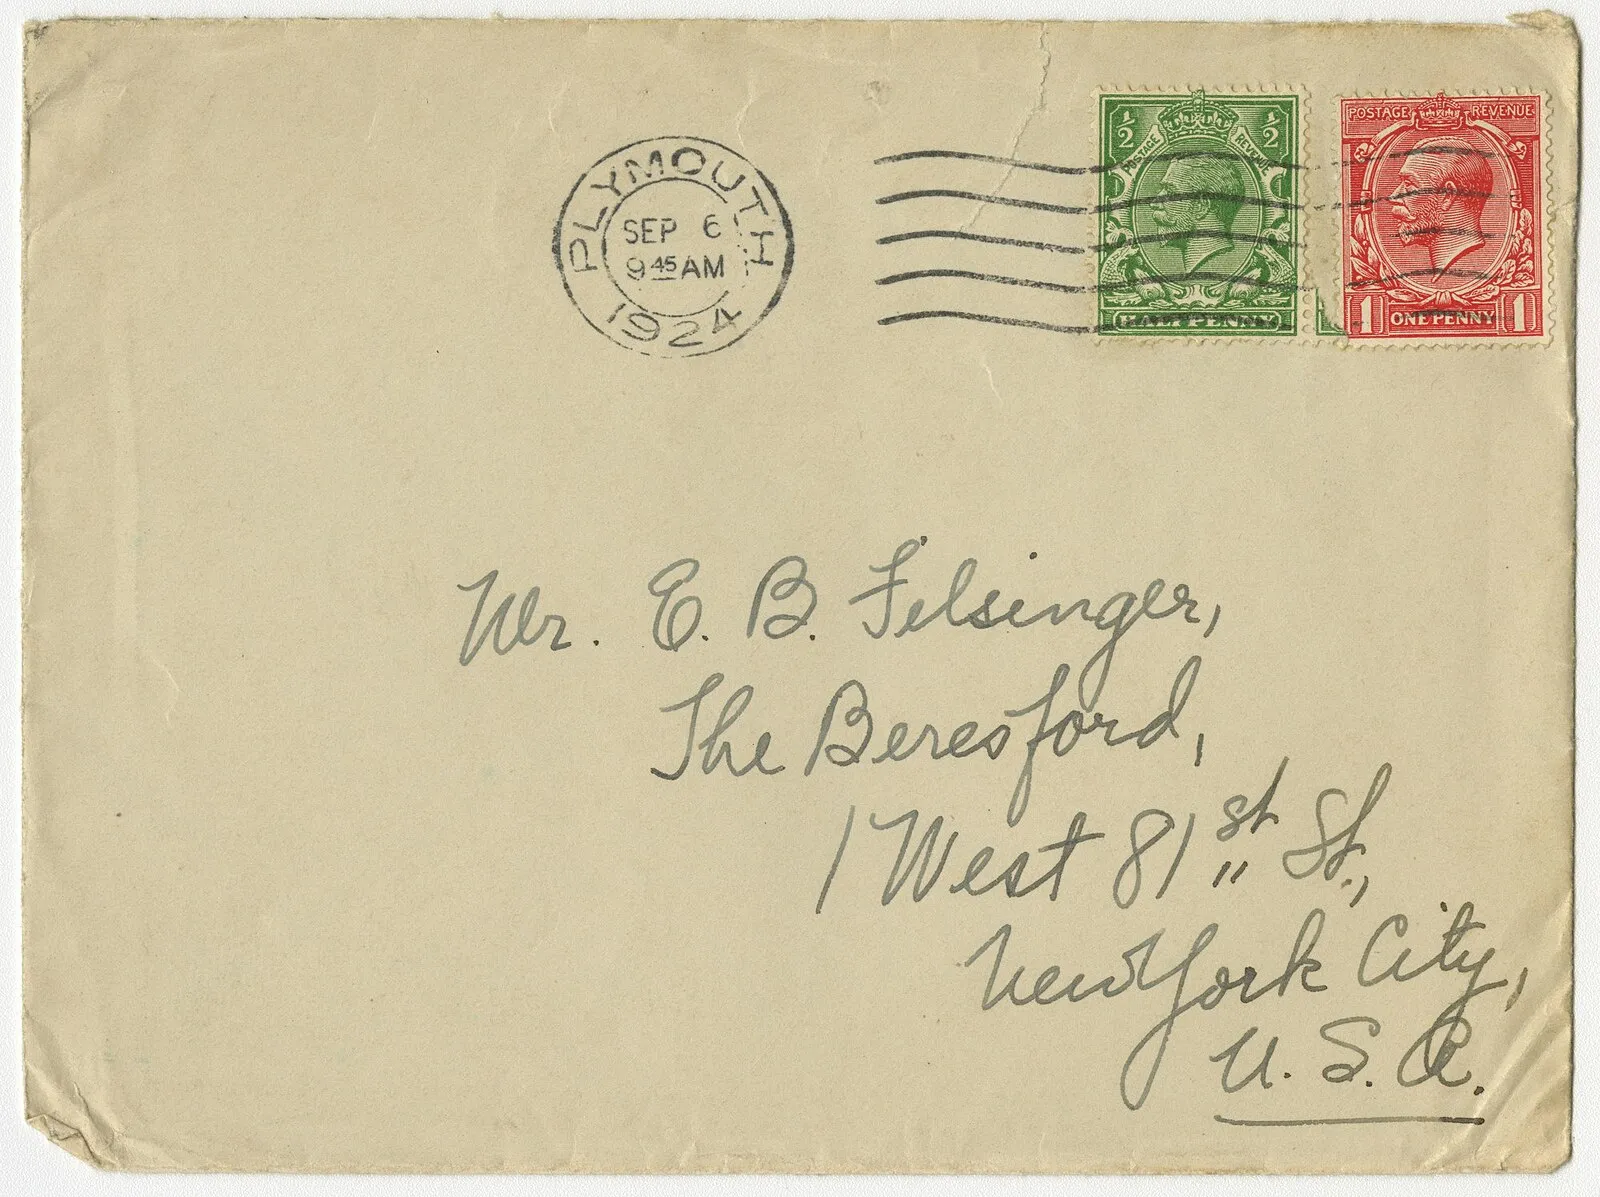 PLYMOUTH
SEP 6
9 45 AM
1924
½ ½
POSTAGE REVENUE
HALF PENNY
POSTAGE REVENUE
1 ONE PENNY 1
Mr. E. B. Filsinger,
The Beresford,
1 West 81st St.,
New York City,
U. S. A.